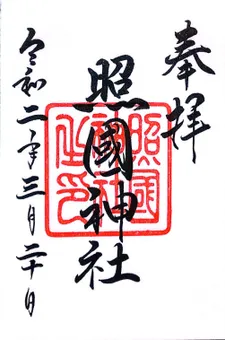 奉拝
照國神社
照國神社之印
令和二年三月二十日